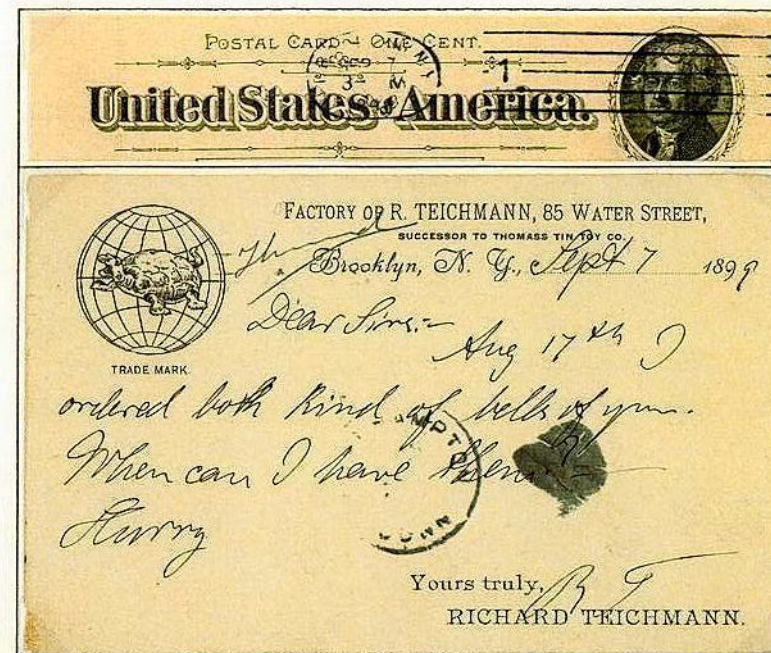 POSTAL CARD ~ ONE CENT.
1
United States America.
FACTORY OF R. TEICHMANN, 85 WATER STREET,
SUCCESSOR TO THOMASS TIN TOY CO.
Brooklyn, N. Y., Sept 7 1899
TRADE MARK.
Dear Sirs:-
Aug 17th I
ordered both kind of bells of you.
When can I have them
Hurry
CONN
Yours truly, R T
RICHARD TEICHMANN.